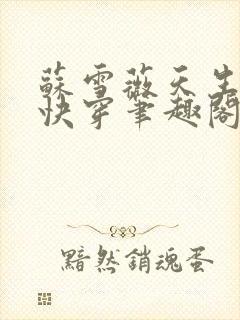 蘇雪薇天生
快穿筆趣閣
黯然銷魂蛋